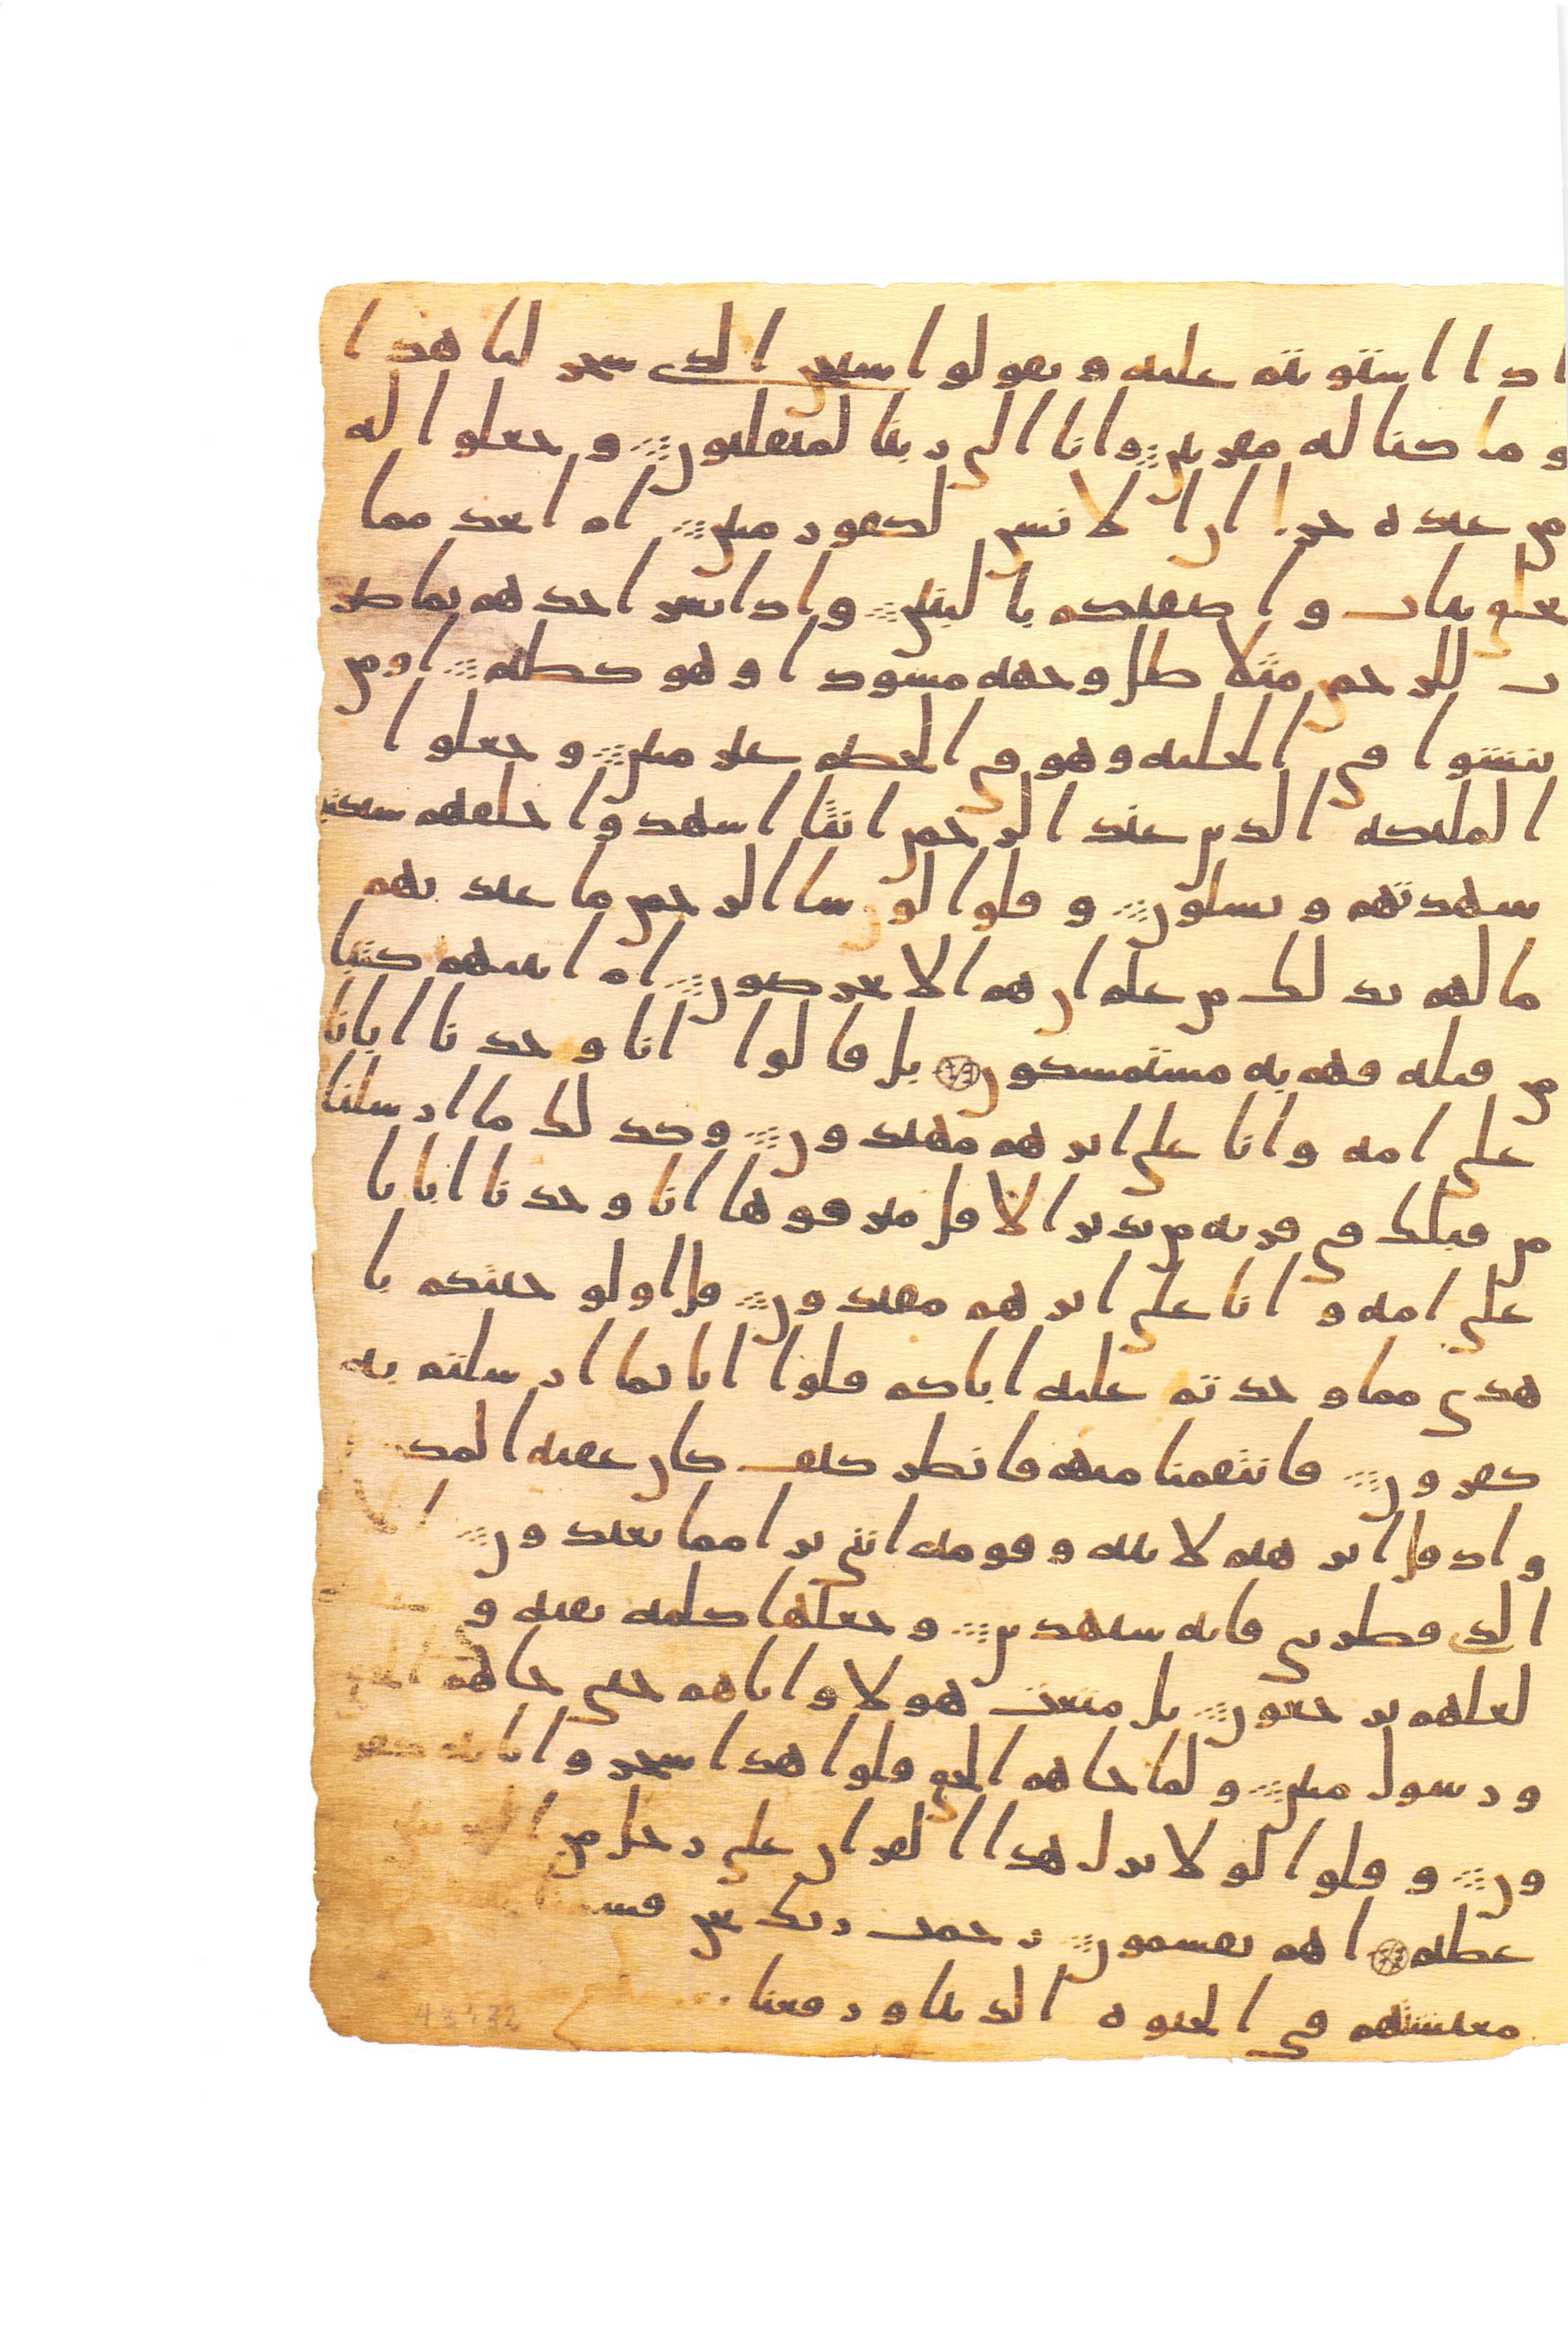 ادا استويتم عليه وتقولوا سبحن الدى سحر لنا هدا
وما كنا له مقرنين وانا الى ربنا لمنقلبون وجعلوا له
من عبده جزا ان الانسن لكفور مبين ام اتخد مما
يخلق بنات واصفيكم بالبنين وادا بشر احدهم بما ضر
ب للرحمن مثلا ظل وجهه مسودا وهو كظيم اومن
ينشوا فى الحليه وهو فى الخصم غير مبين وجعلوا
الملئكه الدين عند الرحمن انثا اشهدوا خلقهم ستكتب
شهدتهم ويسلون وقلوا لو شا الرحمن ما عبدنهم
ما لهم بدلك من علم ان هم الا يخرصون ام اتينهم كتبا
من قبله فهم به مستمسكون بل قالوا انا وجدنا ابانا
على امه وانا على اثرهم مهتدون وكدلك ما ارسلنا
من قبلك فى قريه من ندير الا قل مترفوها انا وجدنا ابانا
على امه وانا على اثرهم مقتدون قل اولو جيتكم با
هدى مما وجدتم عليه اباكم قلوا انا بما ارسلتم به
كفرون فانتقمنا منهم فانظر كيف كان عقبه المكد
واد قل ابرهيم لابيه وقومه اننى برا مما تعبدون ا
الدى فطرنى فانه سيهدين وجعلها كلمه بقيه و
لعلهم يرجعون بل متعت هولا واباهم حتى جاهم الحق
ورسول مبين ولما جاهم الحق قلوا هدا سحر وانا به كفر
ون وقلوا لولا نزل هدا القران على رجل من القريتين
عظيم اهم يقسمون رحمت ربك نحن قسمنا
معيشتهم فى الحيوه الدنيا ورفعنا
43432